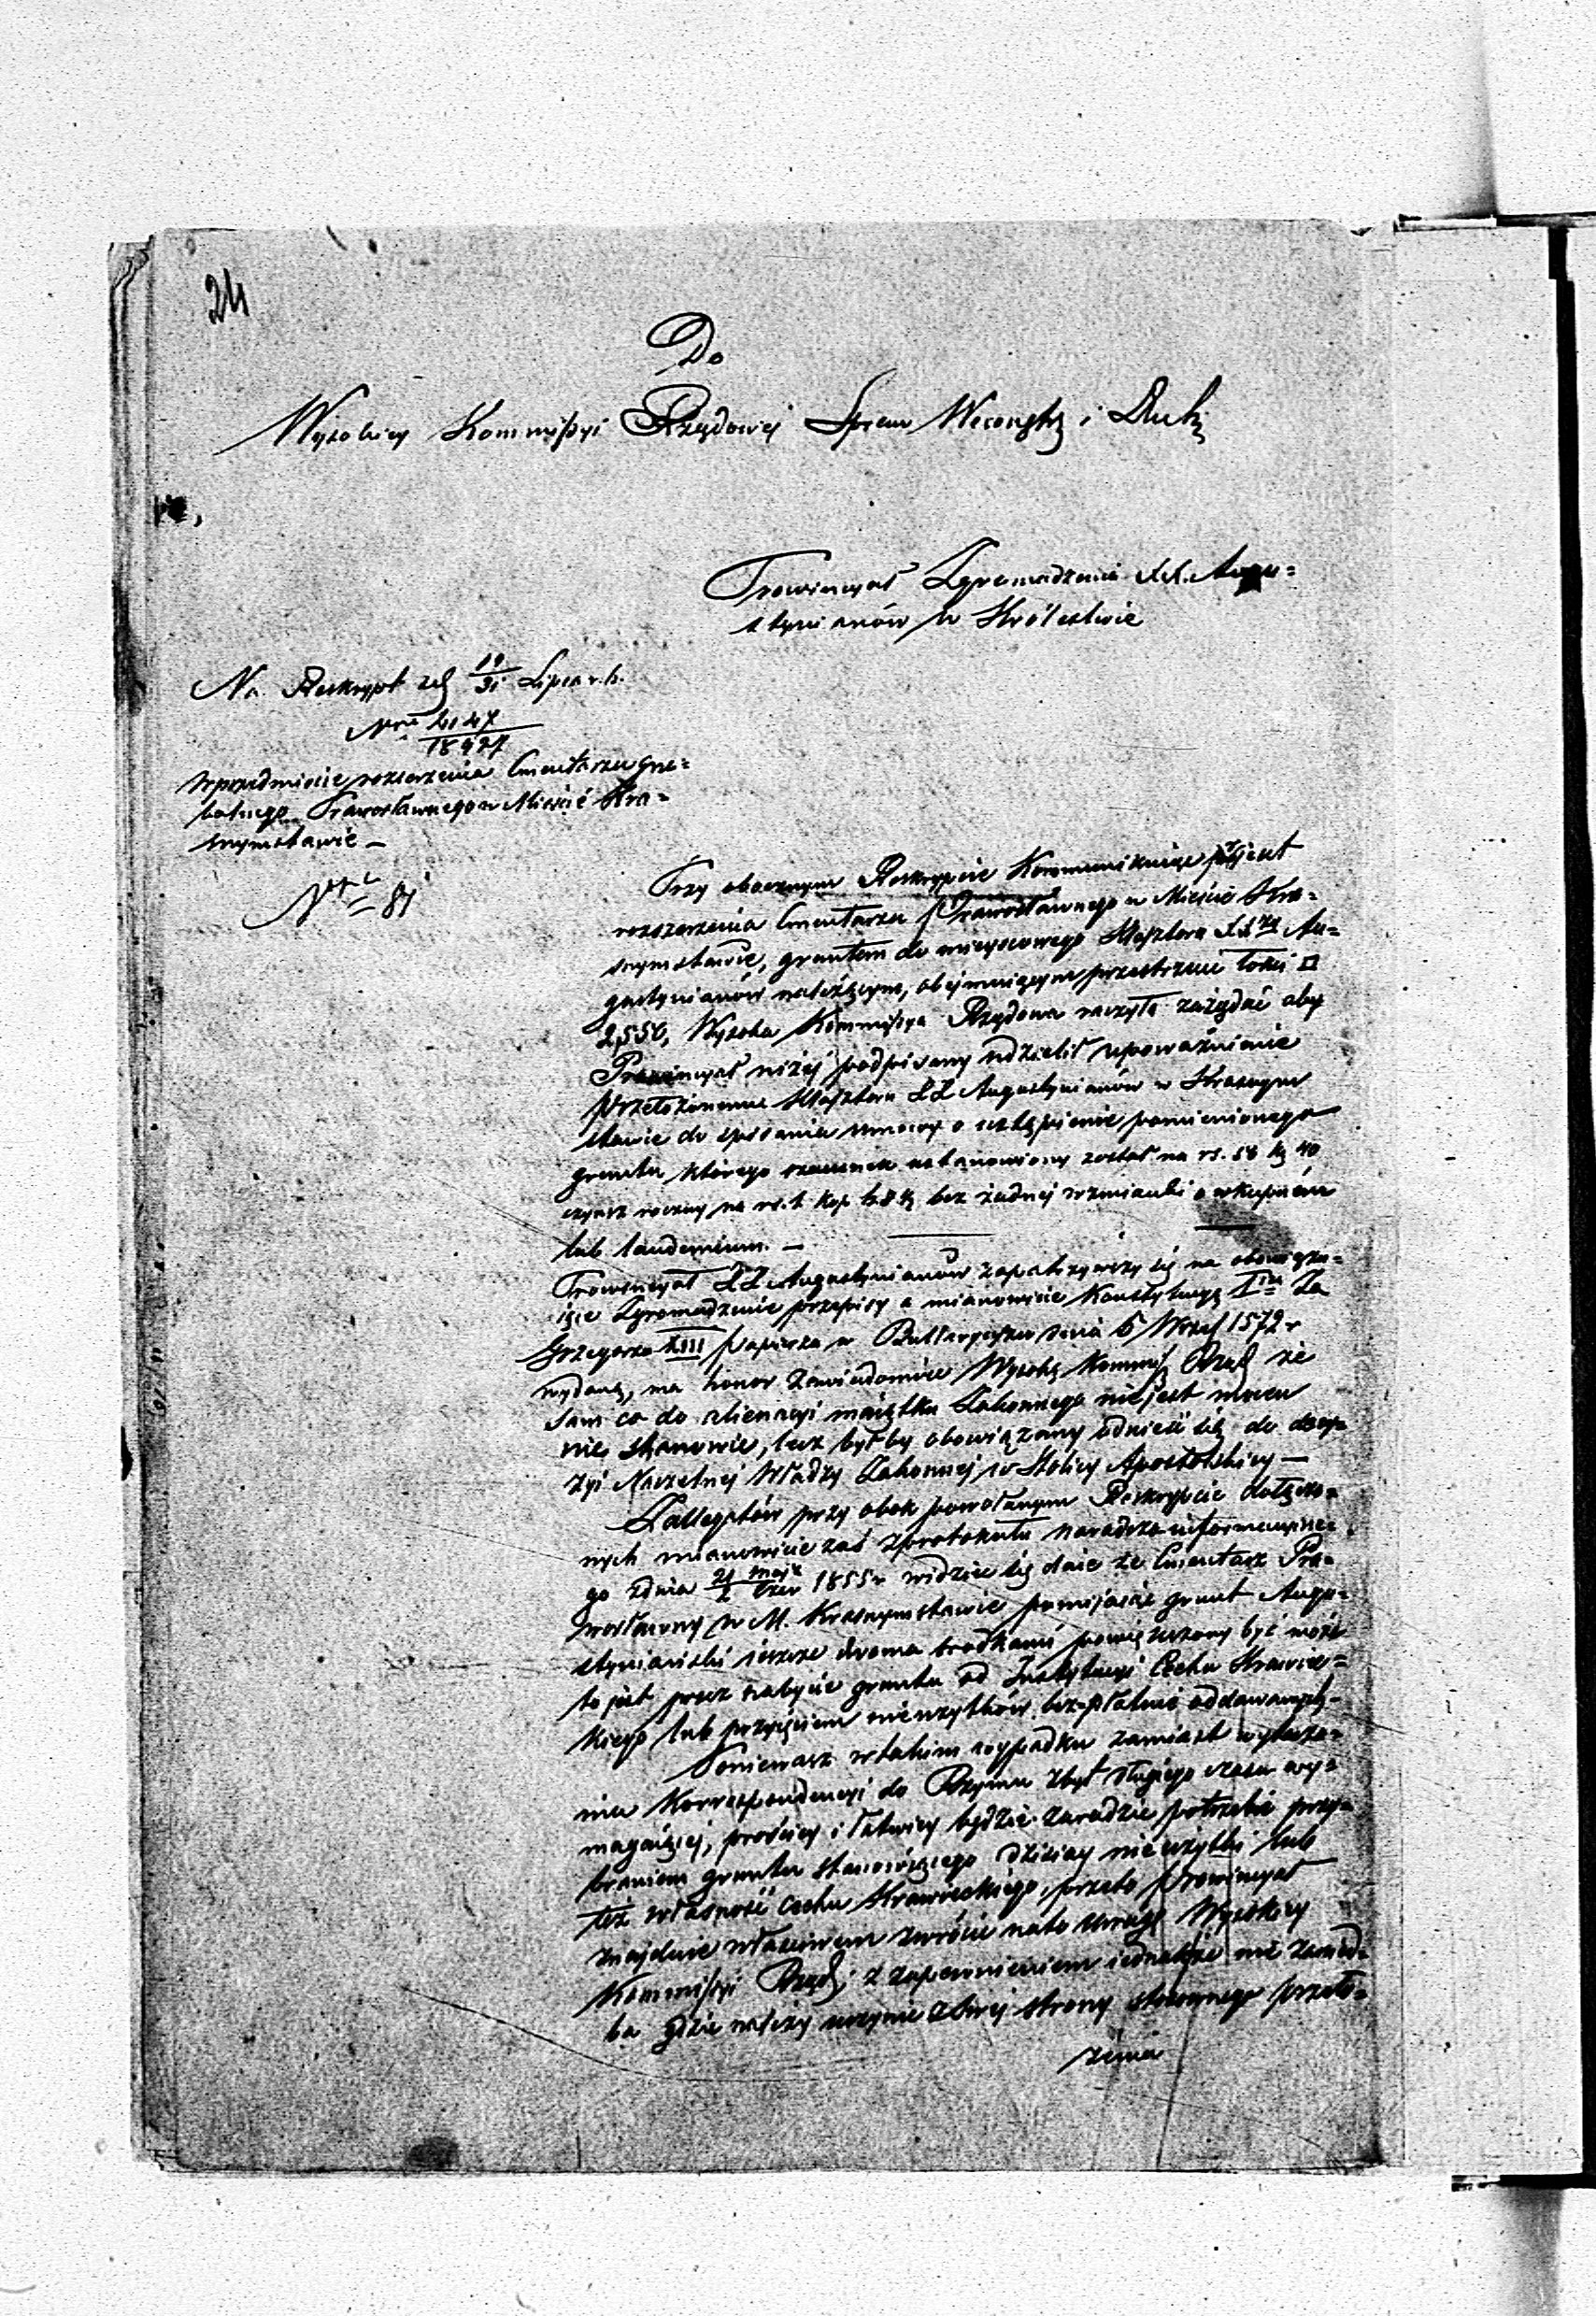 24
Do
Wysokiey Kommissyi Rządowej Spraw Wewnętrz i Duch
Prowincyał Zgromadzenia XX. Augu=
stynianów w Królestwie
Na Reskrypt zd 19/31 Lipca r. b.
Nro 4147/18427
w przedmiocie rozszerzenia Cmentarza grze=
balnego Prawosławnego w Mieście Kra=
snymstawie –
Nro 81
Przy obocznym Reskrypcie Kommunikując projekt
rozszerzenia Cmentarza Prawosławnego w Mieście Kra=
snymstawie, gruntem do miejscowego Klasztoru XX Au=
gustynianów należącym, obejmującym przestrzeni łokci □
2,550, Wysoka Kommissya Rządowa raczyła zażądać aby
Prowincyał niżej podpisany udzielił upoważnienie
Przełożonemu Klasztoru XX Augustynianów w Krasnym
stawie do spisania umowy o ustąpienie pomienionego
gruntu którego szacunek ustanowiony został na rs. 58 k 40
czynsz roczny na rs. 1 kop bez żadnej wzmianki o wkupnem
lub laudemium. –
Prowincyał XX Augustynianów zapatrzywszy się na obowiązu=
iące Zgromadzenie przepisy a mianowicie Konstytucyą
Grzegorza XIII Papieża w Bullaryuszu dnia 6 Wrześ 1572 r
wydaną, ma honor zawiadomić Wysoką Kommis Rząd że
sam co do alienacyi majątku Zakonnego niejest mocen
nic stanowić, lecz byłby obowiązany odnieść się do decy=
zyi Naczelnej Władzy Zakonnej w Stolicy Apostolskiey –
Z allegatów przy obok powołanym Reskrypcie dołączo=
nych mianowicie zaś z protokułu naradczo informacyjne
go z dnia 21 maja/2 Czer 1855 r widzieć się daie że Cmentarz Pra=
wosławny w M. Krasnymstawie pomijając grunt Augu=
styniański ieszcze dwoma środkami powiększony być może
to jest przez nabycie gruntu od Instytucyi Cechu Krawiec=
kiego lub przyjęciem nieużytków bezpłatnie oddawanych –
Ponieważ w takim wypadku zamiast wytacza=
nia Korrespondencyi do Rzymu zbyt długiego czasu wy=
magaiącej, prościej i łatwiej będzie zaradzić potrzebie przy=
braniem gruntu stanowiącego dzisiay nieużytki lub
też własność Cechu Krawieckiego, przeto Prowincyał
znajduie właściwem zwrócić na to uwagę Wysokiey
Kommissyi Rząd z zapewnieniem iednakże nie zanied=
ba gdzie należy uczynić z swej strony stosownego przeło=
żenia